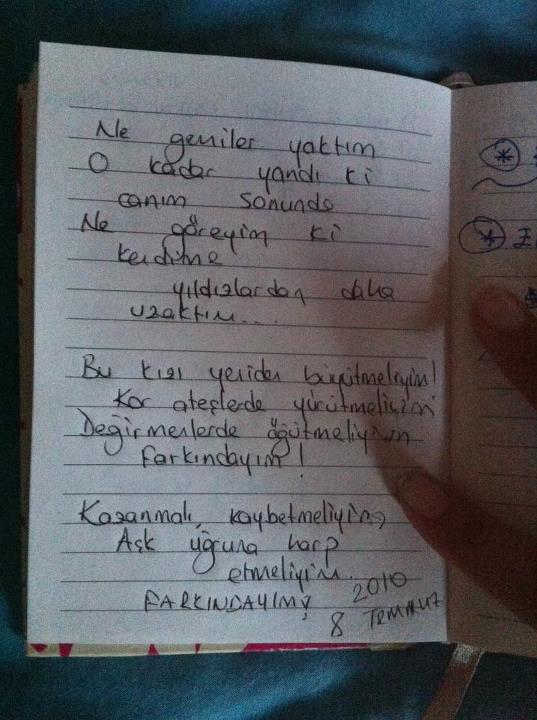 Ne gemiler yaktım
O kadar yandı ki
canım sonunda
Ne göreyim ki
kendime
yıldızlardan daha
uzaktım....
Bu kızı yeniden büyütmeliyim!
Kor ateşlerde yürütmeliyim
Değirmenlerde öğütmeliyim
farkındayım!
Kazanmalı, kaybetmeliyim,
Aşk uğruna harp
etmeliyim.
FARKINDAYIM!
2010
8 TEMMUZ